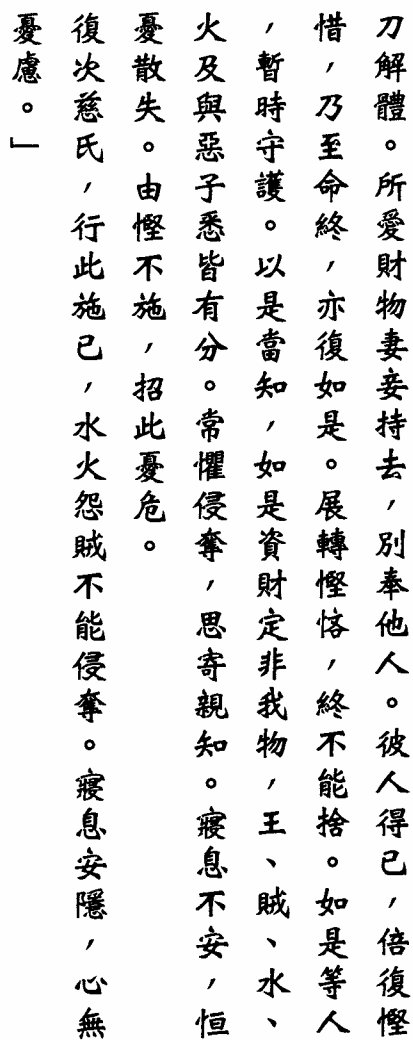 刀解體。所愛財物妻妾持去，別奉他人。彼人得已，倍復慳
惜，乃至命終，亦復如是。展轉慳悋，終不能捨。如是等人
，暫時守護。以是當知，如是資財定非我物，王、賊、水、
火及與惡子悉皆有分。常懼侵奪，思寄親知。寢息不安，恒
憂散失。由慳不施，招此憂危。
復次慈氏，行此施已，水火怨賊不能侵奪。寢息安隱，心無
憂慮。」